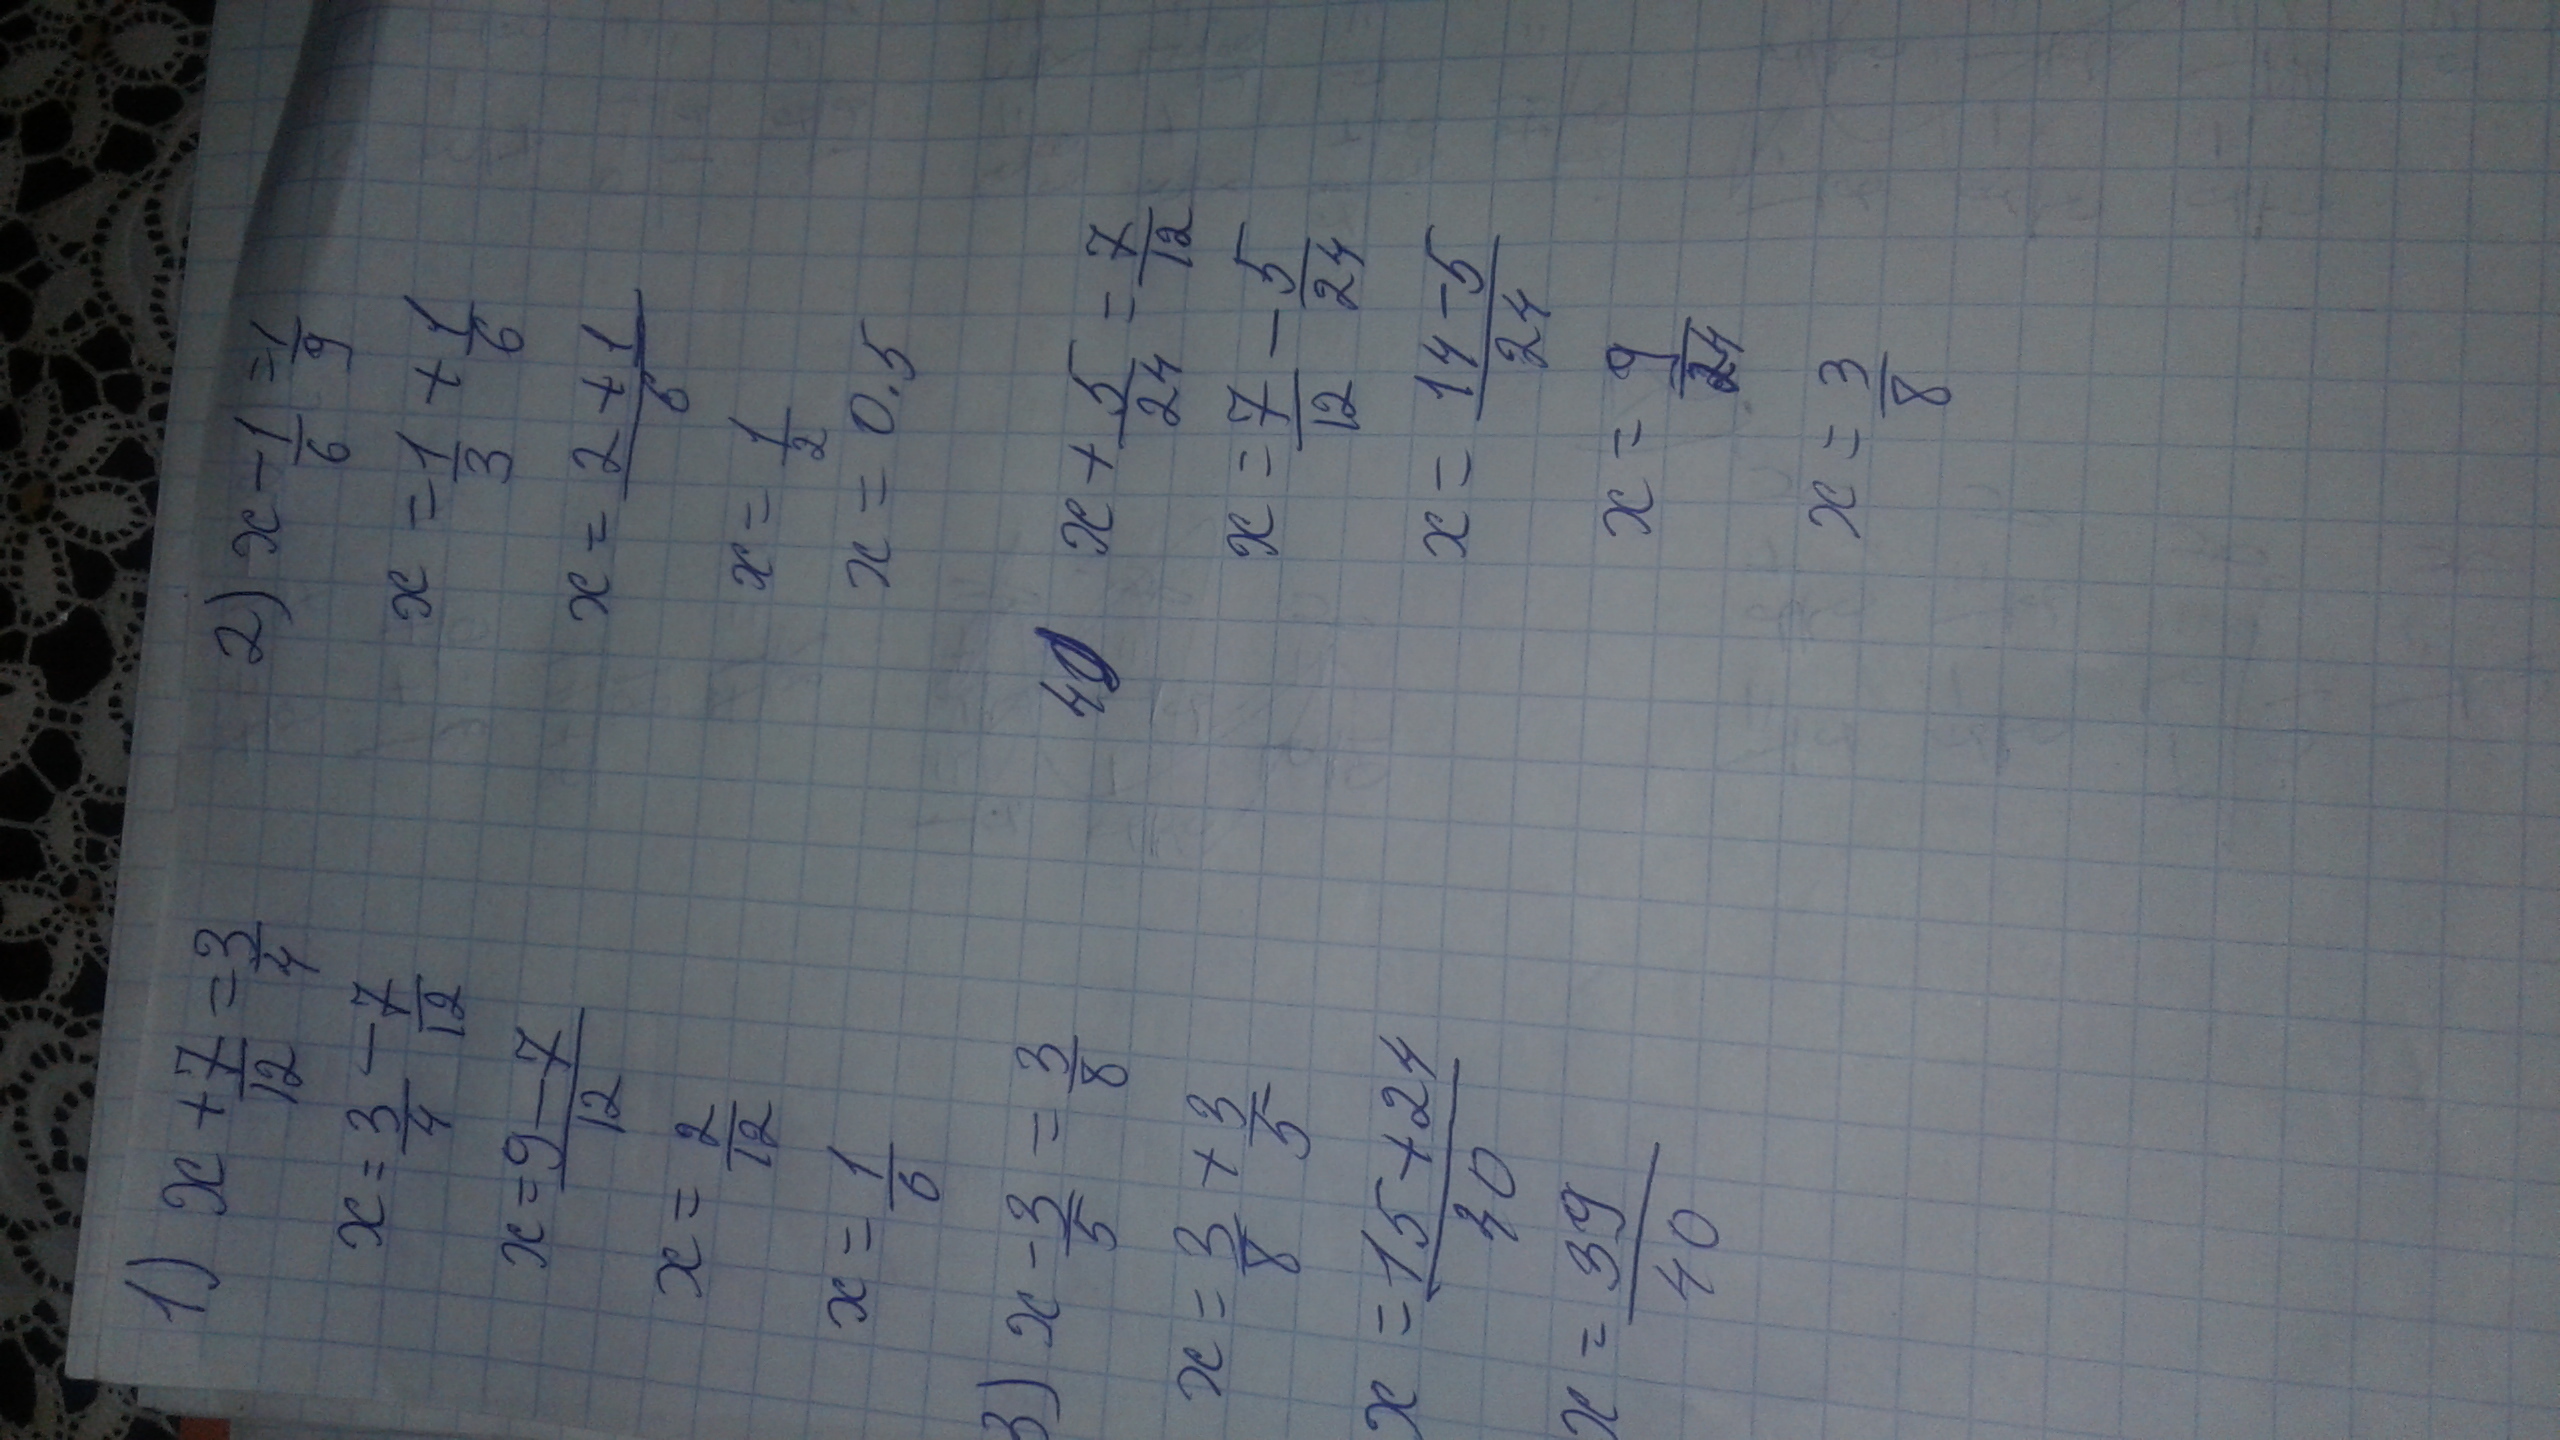 1) x + 7/12 = 3/4
x = 3/4 - 7/12
x = 9-7/12
x = 2/12
x = 1/6
2) x - 1/6 = 1/9
x = 1/3 + 1/6
x = 2+1/6
x = 1/2
x = 0.5
3) x - 3/5 = 3/8
x = 3/8 + 3/5
x = 15+24/40
x = 39/40
4) x + 5/24 = 7/12
x = 7/12 - 5/24
x = 14-5/24
x = 9/24
x = 3/8